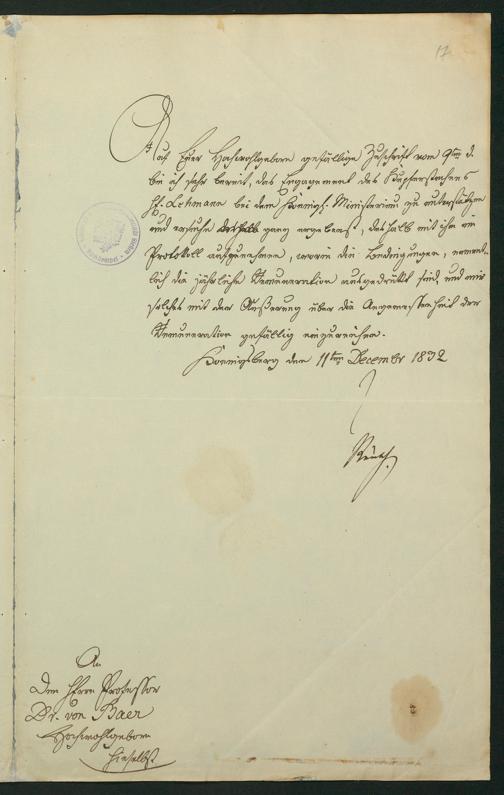 17
Auf Euer Hochwohlgeboren gefällige Zuschrift vom 9ten d.
bin ich sehr bereit, das Engagement des Kupferstechers
H. Lehmann bei dem Königl. Ministerium zu unterstützen
und ersuche ganz ergebenst, deshalb mit ihm ein
Protokoll aufzunehmen, worin die Bedingungen, nament-
lich die jährliche Remuneration ausgedrückt sind, und mir
solches mit der Äußerung über die Angemessenheit der
Remuneration gefällig einzureichen.
Koenigsberg den 11ten December 1832
An
den Herrn Professor
Dr. von Baer
Hochwohlgeboren
hieselbst